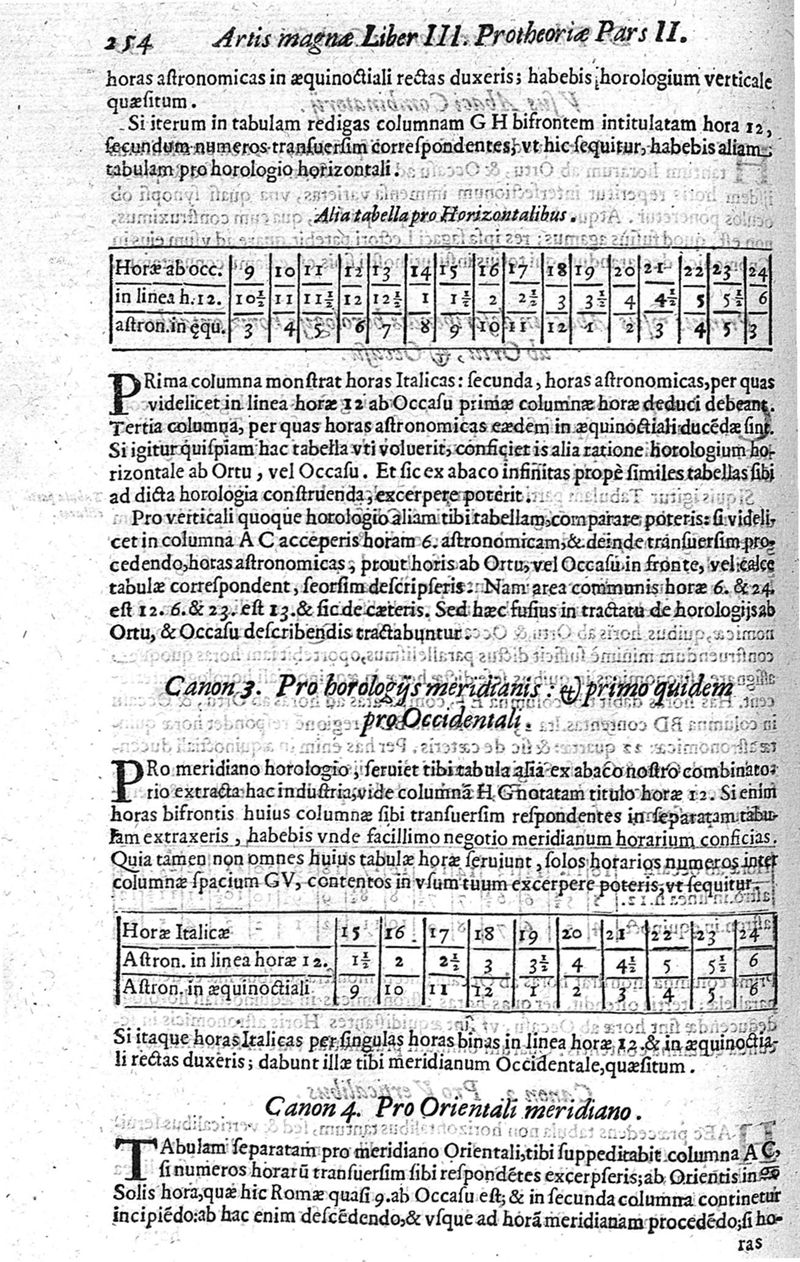 254 Artis magnæ Liber III. Protheoriæ Pars II.
horas aſtronomicas in æquinoctiali rectas duxeris; habebis horologium verticale
quæſitum.
Si iterum in tabulam redigas columnam G H bifrontem intitulatam hora 12,
ſecundum numeros tranſuerſim correſpondentes, vt hic ſequitur, habebis aliam
tabulam pro horologio horizontali.
Alia tabella pro Horizontalibus.
Horæ ab occ. 9 10 11 12 13 14 15 16 17 18 19 20 21 22 23 24
in linea h. 12. 10½ 11 11½ 12 12½ 1 1½ 2 2½ 3 3½ 4 4½ 5 5½ 6
aſtron. in ęqu. 3 4 5 6 7 8 9 10 11 12 1 2 3 4 5 3
PRima columna monſtrat horas Italicas: ſecunda, horas aſtronomicas, per quas
videlicet in linea horæ 12 ab Occaſu primæ columnæ horæ deduci debeant.
Tertia columna, per quas horas aſtronomicas eædem in æquinoctiali ducēdæ ſint.
Si igitur quiſpiam hac tabella vti voluerit, conficiet is alia ratione horologium ho-
rizontale ab Ortu, vel Occaſu. Et ſic ex abaco infinitas propè ſimiles tabellas ſibi
ad dicta horologia conſtruenda, excerpere poterit.
Pro verticali quoque horologio aliam tibi tabellam, comparare poteris: ſi videli-
cet in columna A C acceperis horam 6. aſtronomicam, & deinde tranſuerſim pro-
cedendo, horas aſtronomicas, prout horis ab Ortu, vel Occaſu in fronte, vel calce
tabulæ correſpondent, ſeorſim deſcripſeris. Nam area communis horæ 6. & 24.
eſt 12. 6. & 23. eſt 13. & ſic de cæteris. Sed hæc fuſius in tractatu de horologijs ab
Ortu, & Occaſu deſcribendis tractabuntur.
Canon 3. Pro horologijs meridianis: & primo quidem
pro Occidentali.
PRo meridiano horologio, ſeruiet tibi tabula alia ex abaco noſtro combinato-
rio extracta hac induſtria; vide columnā H G notatam titulo horæ 12. Si enim
horas bifrontis huius columnæ ſibi tranſuerſim reſpondentes in ſeparatam tabu-
lam extraxeris, habebis vnde facillimo negotio meridianum horarium conficias.
Quia tamen non omnes huius tabulæ horæ ſeruiunt, ſolos horarios numeros inter
columnæ ſpacium GV, contentos in vſum tuum excerpere poteris, vt ſequitur.
Horæ Italicæ 15 16 17 18 19 20 21 22 23 24
Aſtron. in linea horæ 12. 1½ 2 2½ 3 3½ 4 4½ 5 5½ 6
Aſtron. in æquinoctiali 9 10 11 12 1 2 3 4 5 6
Si itaque horas Italicas per ſingulas horas binas in linea horæ 12. & in æquinoctia-
li rectas duxeris; dabunt illæ tibi meridianum Occidentale, quæſitum.
Canon 4. Pro Orientali meridiano.
TAbulam ſeparatam pro meridiano Orientali, tibi ſuppeditabit columna A C,
ſi numeros horarū tranſuerſim ſibi reſpondētes excerpſeris; ab Orientis in
Solis hora, quæ hic Romæ quaſi 9. ab Occaſu eſt; & in ſecunda columna continetur
incipiēdo: ab hac enim deſcēdendo, & vſque ad horā meridianam procedēdo; ſi ho-
ras